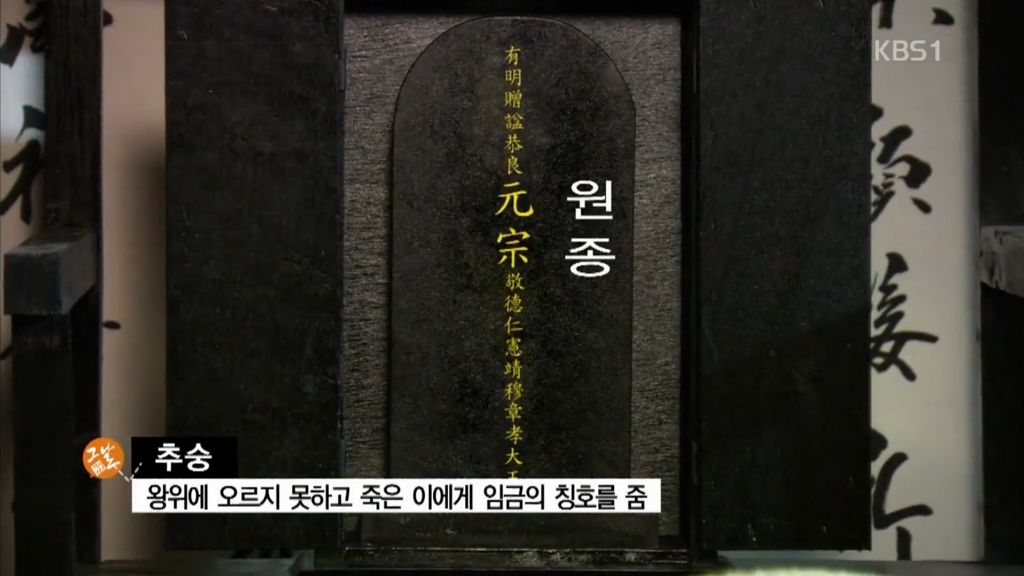 KBS1
有明贈諡恭良元宗敬德仁憲靖穆章孝大
원종
그날
추숭
왕위에 오르지 못하고 죽은 이에게 임금의 칭호를 줌